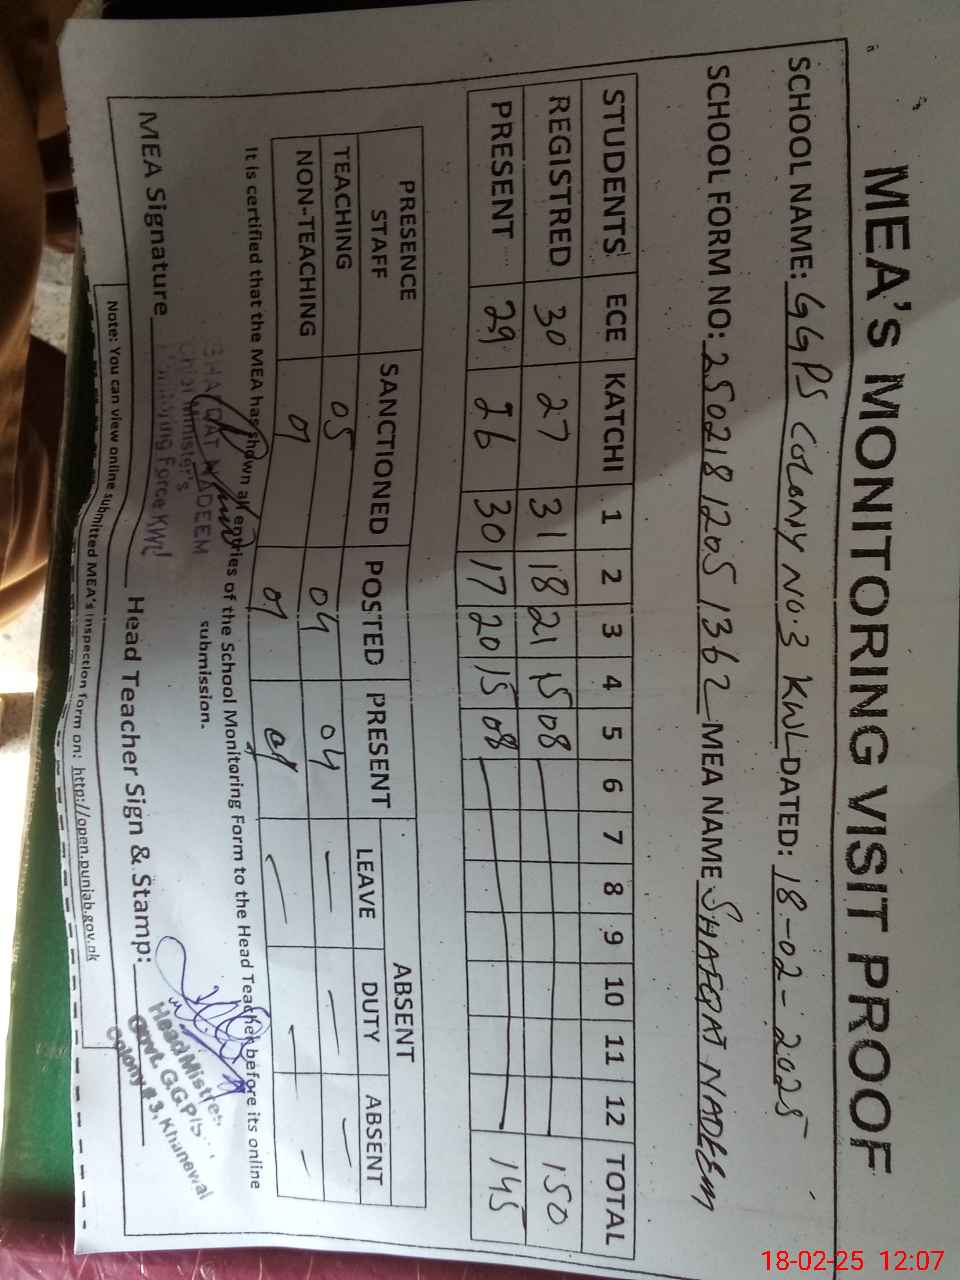 MEA'S MONITORING VISIT PROOF
SCHOOL NAME: GGPS COLONY NO.3 KWL DATED: 18-02-2025
SCHOOL FORM NO: 25021812051362 MEA NAME SHAFQAT NADEEM
STUDENTS ECE KATCHI 1 2 3 4 5 6 7 8 9 10 11 12 TOTAL
REGISTRED 30 27 31 18 21 15 08 150
PRESENT 29 26 30 17 20 15 08 145
PRESENCE STAFF SANCTIONED POSTED PRESENT ABSENT
LEAVE DUTY ABSENT
TEACHING 05 04 04 — — —
NON-TEACHING 01 01 01 — — —
It is certified that the MEA has shown all entries of the School Monitoring Form to the Head Teacher before its online
submission.
SHAFQAT NADEEM
Chief Minister's
Monitoring Force KWL
MEA Signature Head Teacher Sign & Stamp:
Head Mistress
Govt. G.G.P/S
Colony # 3, Khanewal
Note: You can view online submitted MEA's inspection form on: http://open.punjab.gov.pk
18-02-25 12:07